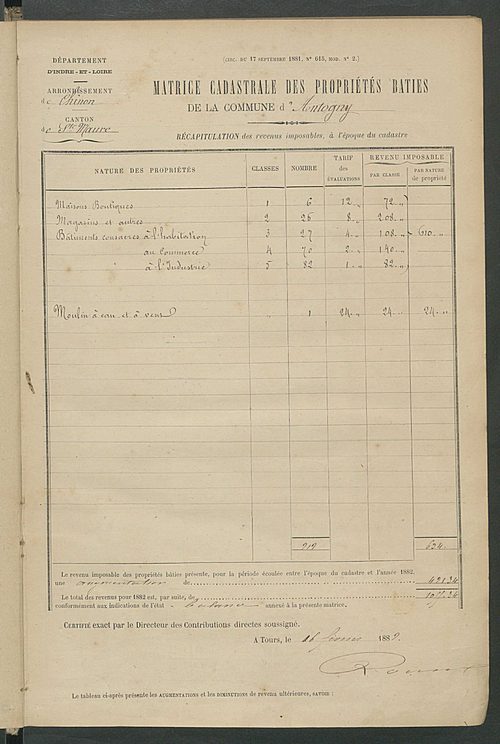 DÉPARTEMENT
D'INDRE-ET-LOIRE
ARRONDISSEMENT
de Chinon
CANTON
de Ste Maure
(CIRC. DU 17 SEPTEMBRE 1881, N° 615, MOD. N° 2.)
MATRICE CADASTRALE DES PROPRIÉTÉS BATIES
DE LA COMMUNE d'Antogny
RÉCAPITULATION des revenus imposables, à l'époque du cadastre
NATURE DES PROPRIÉTÉS CLASSES NOMBRE TARIF des ÉVALUATIONS REVENU IMPOSABLE PAR CLASSE PAR NATURE de propriété
Maisons Boutiques 1 6 12 „ 72 „
Magasins et autres 2 26 8 „ 208 „
Bâtiments consacrés à l'habitation 3 27 4 „ 108 „ 610 „
au Commerce 4 70 2 „ 140 „
à l'Industrie 5 82 1 „ 82 „
Moulin à eau et à vent „ 1 24 „ 24 „ 24 „
212 634
Le revenu imposable des propriétés bâties présente, pour la période écoulée entre l'époque du cadastre et l'année 1882,
une augmentation de
Le total des revenus pour 1882 est, par suite, de
conformément aux indications de l'état annexé à la présente matrice.
CERTIFIÉ exact par le Directeur des Contributions directes soussigné.
A Tours, le 16 février 1882.
Le tableau ci-après présente les AUGMENTATIONS et les DIMINUTIONS de revenu ultérieures, SAVOIR :